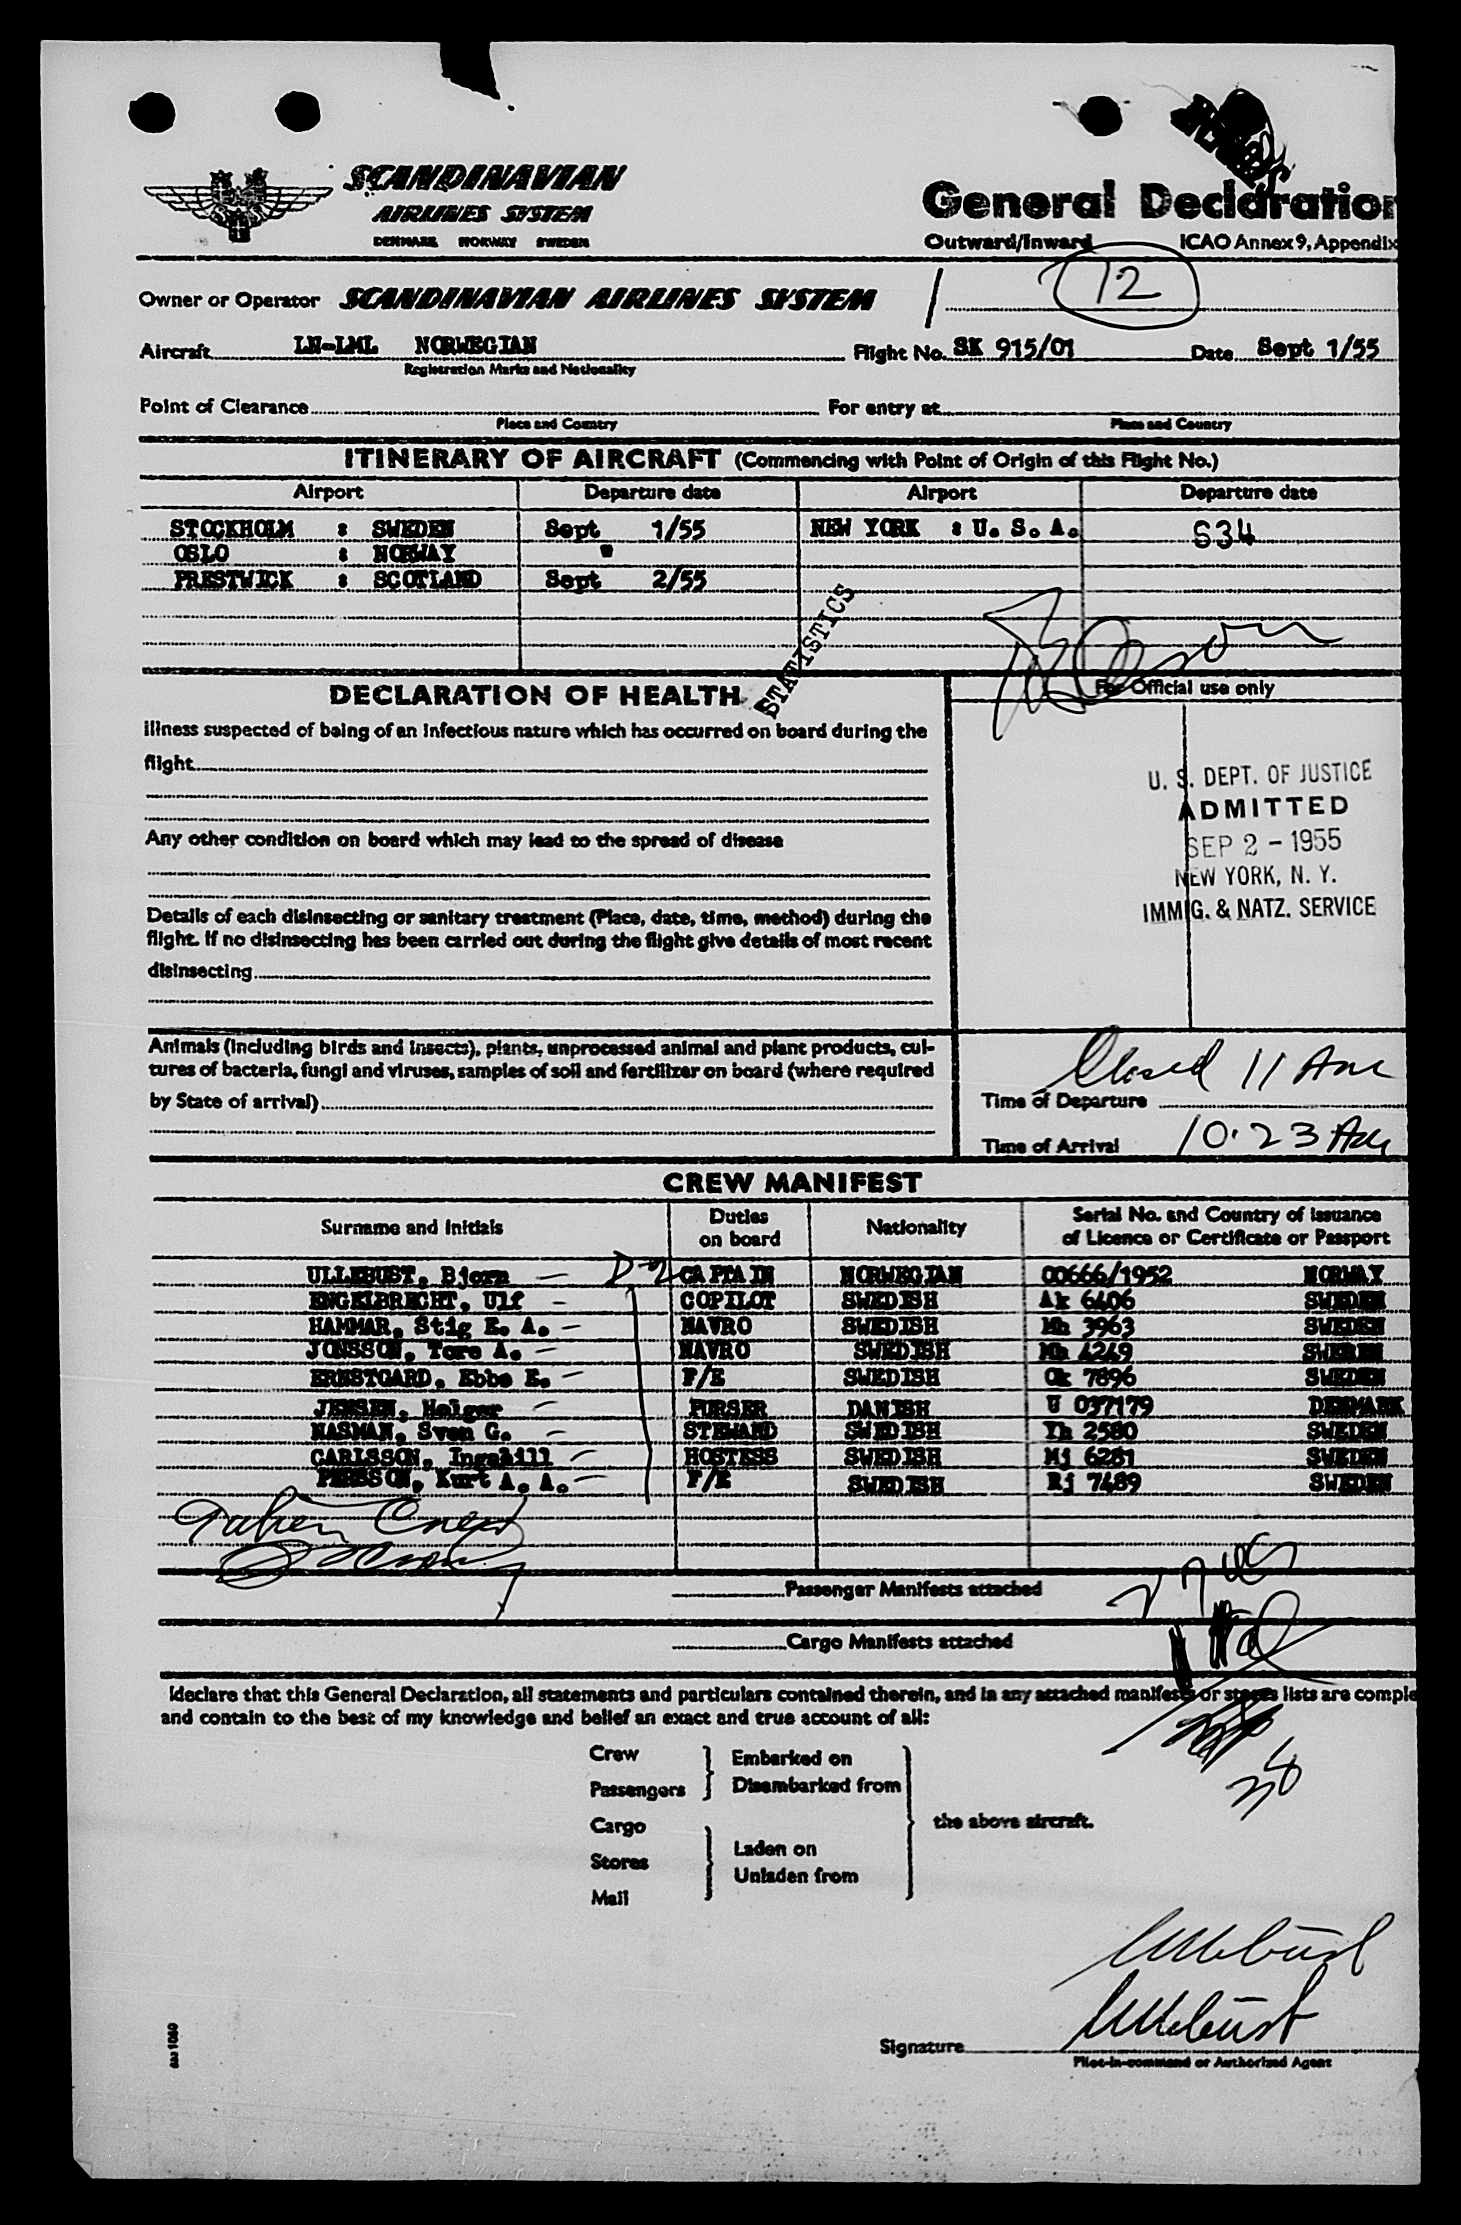 SCANDINAVIAN
AIRLINES SYSTEM
DENMARK NORWAY SWEDEN
General Declaration
Outward/Inward ICAO Annex 9, Appendix
12
Owner or Operator SCANDINAVIAN AIRLINES SYSTEM
Aircraft LN-LML NORWEGIAN Flight No. SK 915/01 Date Sept 1/55
Registration Marks and Nationality
Point of Clearance For entry at
Place and Country Place and Country
ITINERARY OF AIRCRAFT (Commencing with Point of Origin of this Flight No.)
Airport Departure date Airport Departure date
STOCKHOLM : SWEDEN Sept 1/55 NEW YORK : U. S. A. 634
OSLO : NORWAY "
PRESTWICK : SCOTLAND Sept 2/55
STATISTICS
DECLARATION OF HEALTH For Official use only
Illness suspected of being of an infectious nature which has occurred on board during the
flight
U. S. DEPT. OF JUSTICE
ADMITTED
SEP 2 - 1955
NEW YORK, N. Y.
IMMIG. & NATZ. SERVICE
Any other condition on board which may lead to the spread of disease
Details of each disinsecting or sanitary treatment (Place, date, time, method) during the
flight. If no disinsecting has been carried out during the flight give details of most recent
disinsecting
Animals (including birds and insects), plants, unprocessed animal and plant products, cul-
tures of bacteria, fungi and viruses, samples of soil and fertilizer on board (where required
by State of arrival)
Closed 11 Am
Time of Departure
Time of Arrival 10.23 Am
CREW MANIFEST
Surname and Initials Duties on board Nationality Serial No. and Country of issuance of Licence or Certificate or Passport
ULLEBUST, Bjorn — D-2 CAPTAIN NORWEGIAN 00666/1952 NORWAY
ENGELBRECHT, Ulf — COPILOT SWEDISH Ak 6406 SWEDEN
HAMMAR, Stig E. A. — NAVRO SWEDISH Mh 3963 SWEDEN
JONSSON, Tore A. — NAVRO SWEDISH Mh 4249 SWEDEN
ERNSTGARD, Ebbe E. — F/E SWEDISH Ok 7896 SWEDEN
JENSEN, Holger — PURSER DANISH U 037179 DENMARK
NASMAN, Sven G. — STEWARD SWEDISH Yh 2580 SWEDEN
CARLSSON, Ingahill — HOSTESS SWEDISH Mj 6281 SWEDEN
PERSSON, Kurt A. A. — F/E SWEDISH Rj 7489 SWEDEN
Passenger Manifests attached
Cargo Manifests attached
I declare that this General Declaration, all statements and particulars contained therein, and in any attached manifests or stores lists are comple
and contain to the best of my knowledge and belief an exact and true account of all:
Crew
Passengers
Embarked on
Disembarked from
Cargo
Stores
Mail
Laden on
Unladen from
the above aircraft.
38
Ullebust
Ullebust
Signature
Pilot-in-command or Authorized Agent